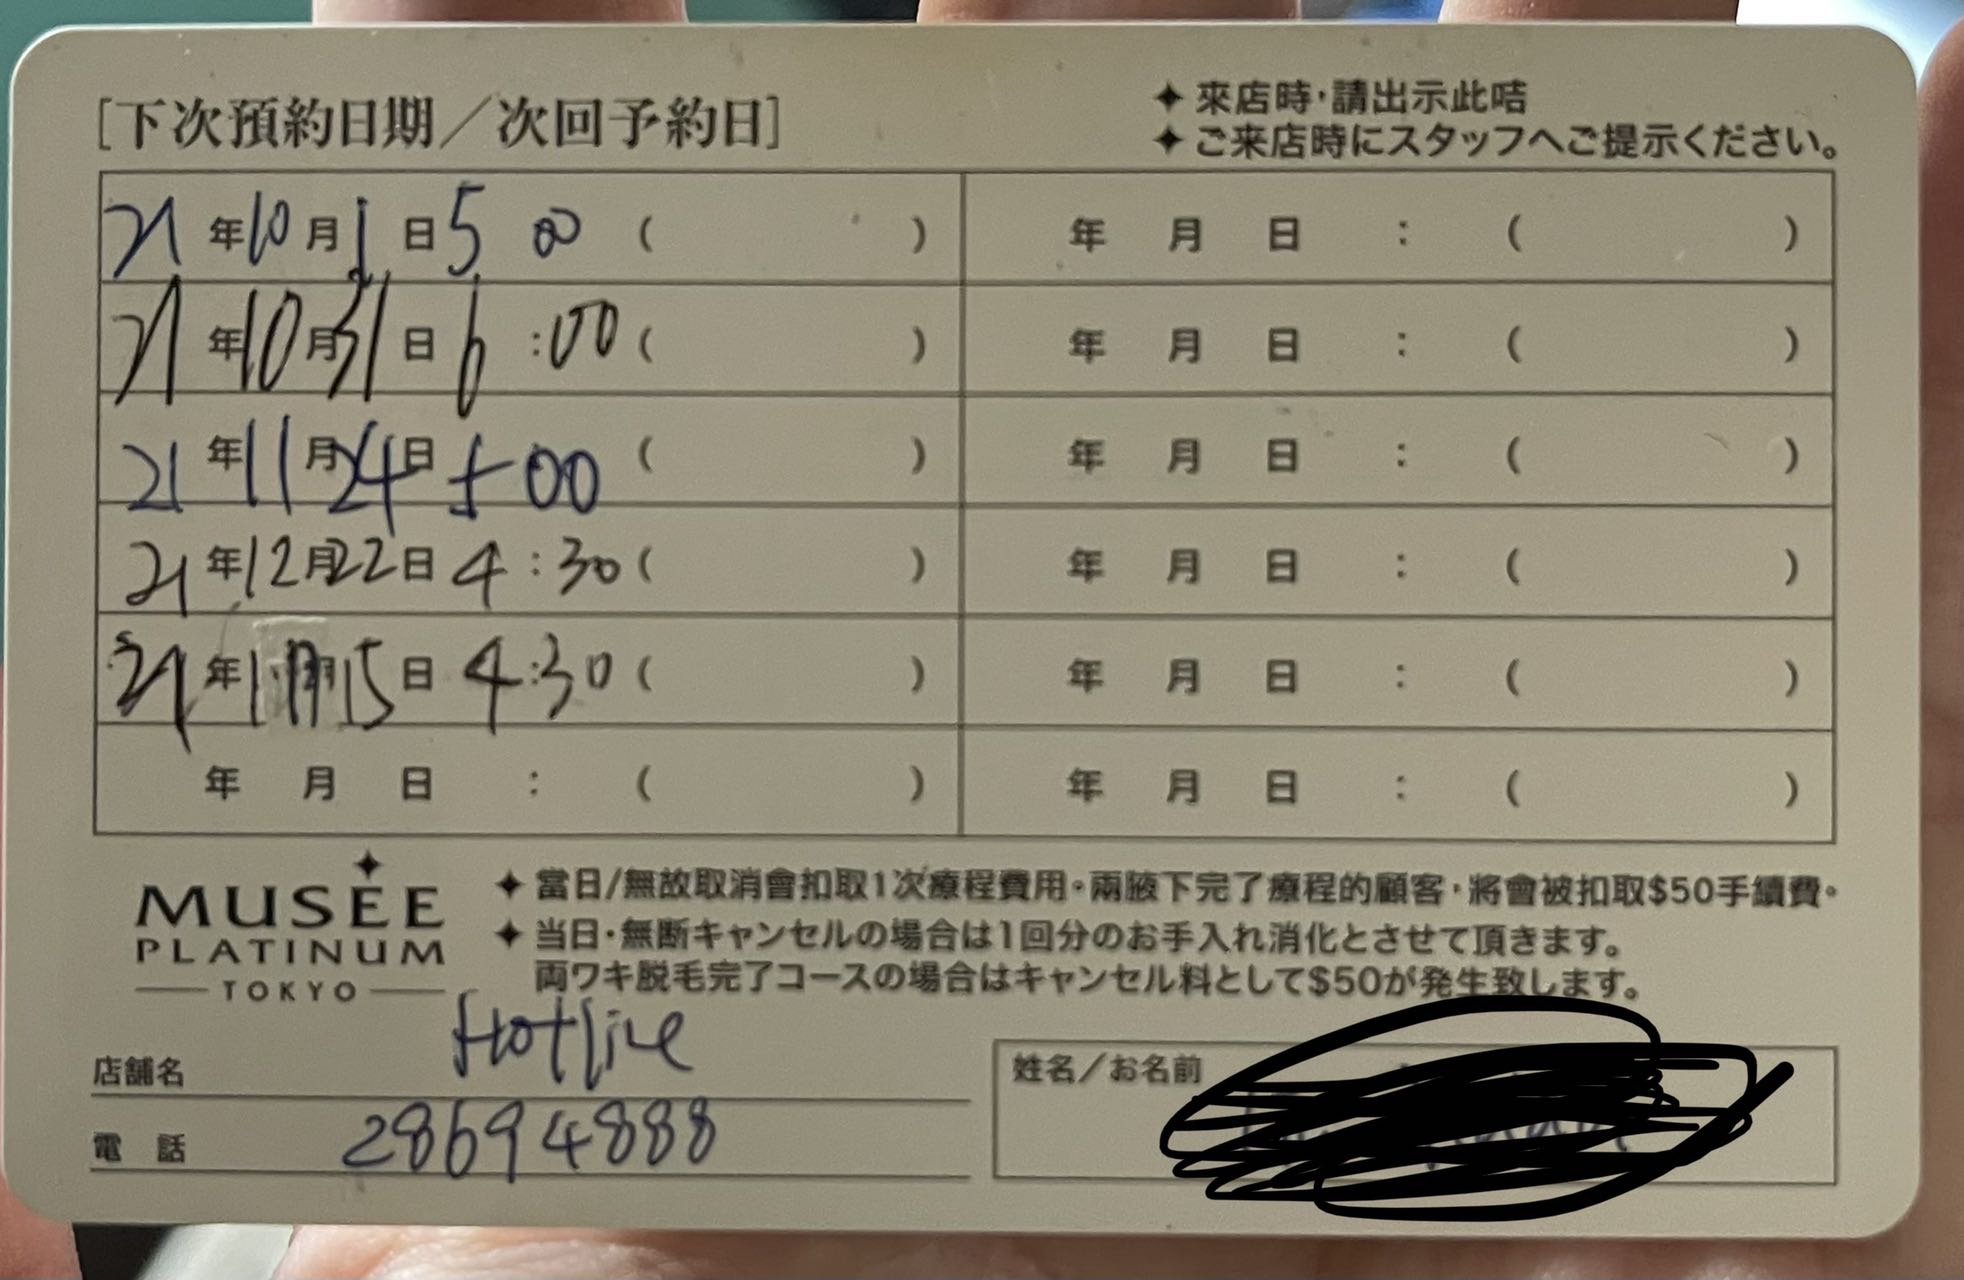 [下次預約日期／次回予約日]
✦ 來店時，請出示此咭
✦ ご来店時にスタッフへご提示ください。
21 年 10 月 1 日 5 00 ( )
年 月 日 : ( )
21 年 10 月 31 日 6 :00 ( )
年 月 日 : ( )
21 年 11 月 24 日 5 00 ( )
年 月 日 : ( )
21 年 12 月 22 日 4 : 30 ( )
年 月 日 : ( )
21 年 1 月 15 日 4 :30 ( )
年 月 日 : ( )
年 月 日 : ( )
年 月 日 : ( )
MUSÉE
PLATINUM
TOKYO
✦ 當日/無故取消會扣取1次療程費用。兩腋下完了療程的顧客，將會被扣取$50手續費。
✦ 当日・無断キャンセルの場合は1回分のお手入れ消化とさせて頂きます。
両ワキ脱毛完了コースの場合はキャンセル料として$50が発生致します。
店舗名 Hotline
電 話 28694888
姓名／お名前